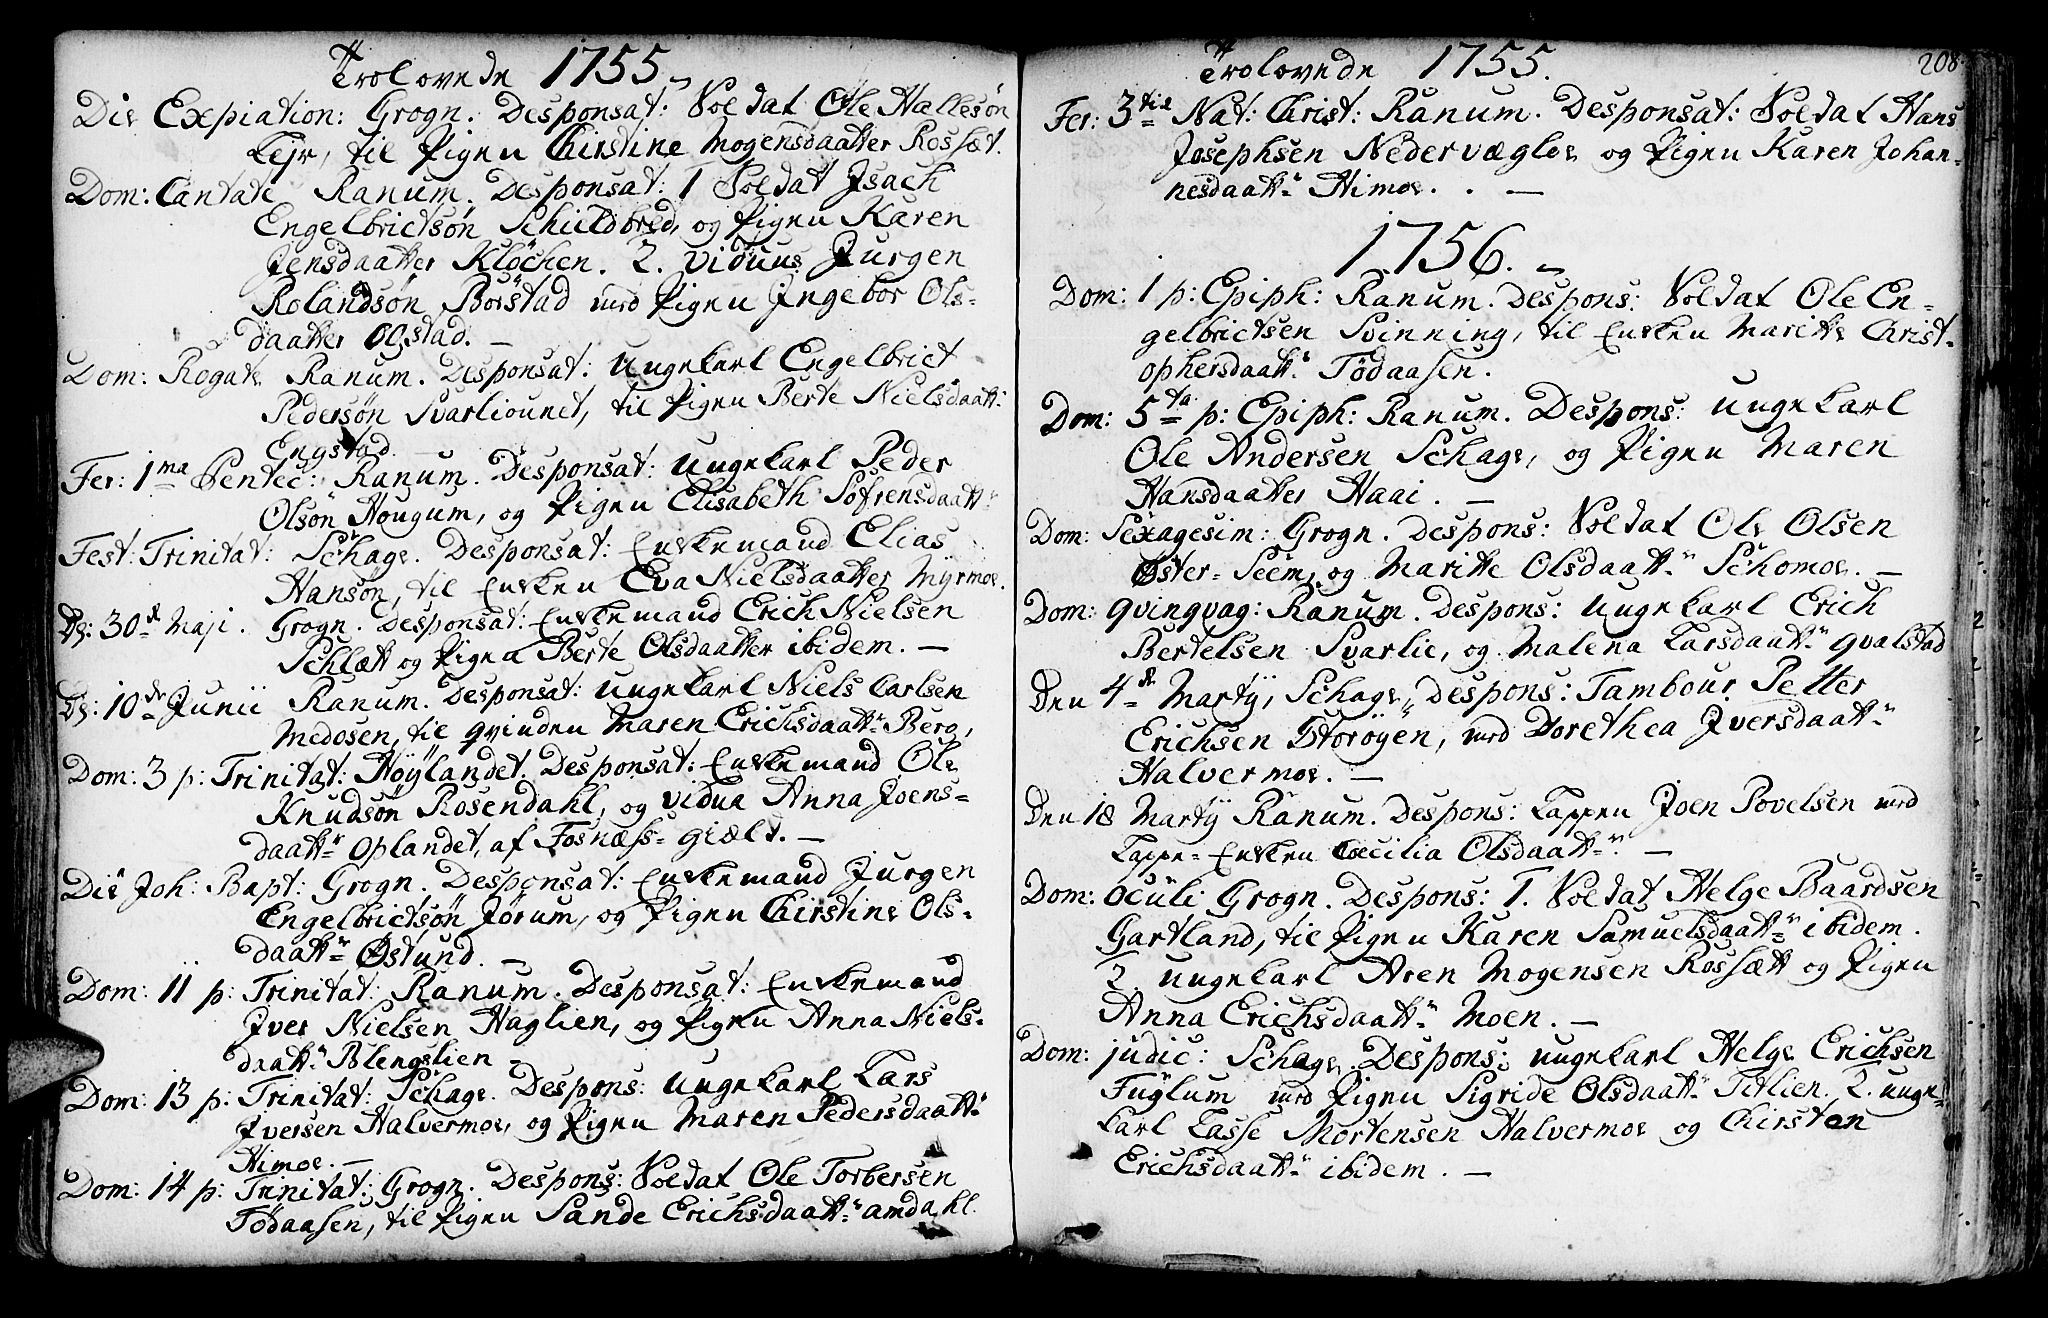 Trolovede 1755
Die Expiation: Grogn. Desponsat: Soldat Ole Hallesøn
Lejr, til Pigen Chirstine Mogensdaatter Rossæt.
Dom: Cantate Ranum. Desponsat: 1 Soldat Isach
Engelbrictsøn Schieldbred, og Pigen Karen
Jensdaatter Kløchen. 2. viduus Jurgen
Rolandsøn Børstad med Pigen Ingebor Ols-
daatter Opstad. –
Dom: Rogate Ranum. Desponsat: Ungekarl Engelbrict
Pedersøn Svarliounet, til Pigen Berte Nielsdaatt:
Engstad. –
Fer: 1ma Pentec: Ranum. Desponsat: Ungekarl Peder
Olsøn Hougum, og Pigen Elisabeth Søfrensdaatt:r
Fest: Trinitat: Schage. Desponsat: Enkemand Elias
Hansøn, til Enken Eva Nielsdaatter Myrmoe.
D: 30te Maji. Grogn. Desponsat: Enkemand Erich Nielsen
Schlætt og Pigen Berte Olsdaatter ibidem. –
D: 10de Junii Ranum. Desponsat: Ungekarl Niels Carlsen
Medosen, til qvinden Maren Erichsdaatt:r Berg,
Dom: 3 p: Trinitat: Høylandet. Desponsat: Enkemand Ole
Knudsøn Rosendahl, og vidua Anna Joens-
daatt:r Oplandet, af Fosnæss-gield. –
Die Joh: Bapt: Grogn. Desponsat: Enkemand Jurgen
Engelbrictsøn Jørum, og Pigen Chirstine Ols-
daatt:r Østund. –
Dom: 11 p: Trinitat: Ranum. Desponsat: Enkemand
Iver Nielsen Haglien, og Pigen Anna Niels-
daatt:r Blengslien –
Dom: 13 p: Trinitat: Schage. Despons: Ungekarl Lars
Iversen Halvermoe, og Pigen Maren Pedersdaatt:r
Himoe. –
Dom: 14 p: Trinitat: Grogn. Despons: Soldat Ole Torbersen
Tødaasen, til Pigen Sande Erichsdaatt:r amdahl.
208.
Trolovede 1755.
Fer: 3tie Nat: Christ: Ranum. Desponsat: Soldat Hans
Josephsen Nedervægloe og Pigen Karen Johan-
nesdaatt:r Himoe. . –
1756. –
Dom: 1 p: Epiph: Ranum. Despons: Soldat Ole En-
gelbrictsen Svinning, til Enken Maritte Christ-
ophersdaatt:r Tødaasen.
Dom: 5ta p: Epiph: Ranum. Despons: Ungekarl
Ole Andersen Schage, og Pigen Maren
Hansdaatter Haai. –
Dom: Sexagesim: Grogn. Despons: Soldat Ole Olsen
Øster-Seem, og Maritte Olsdaatt:r Schomoe. –
Dom: Qvinqvag: Ranum. Despons: Ungekarl Erich
Bertelsen Svarlie, og Malena Larsdaatt:r Qvalstad
Den 4de Martij, Schage, Despons: Tambour Petter
Erichsen Storøyen, med Dorethea Iversdaatt:r
Halvermoe. –
Den 18 Martij Ranum. Despons: Lappen Joen Povelsen med
Lappe-Enken Cæcilia Olsdaatt:r. –
Dom: Oculi Grogn. Despons: 1. Soldat Helge Baardsen
Gartland, til Pigen Karen Samuelsdaatt:r ibidem.
2. Ungekarl Aren Mogensen Rossætt og Pigen
Anna Erichsdaatt:r Moen. –
Dom: Judic: Schage. Despons: Ungekarl Helge Erichsen
Fuglum med Pigen Sigride Olsdaatt:r Titlien. 2. unge-
karl Lasse Mortensen Halvermoe og Chirsten
Erichsdaatt:r ibidem. –